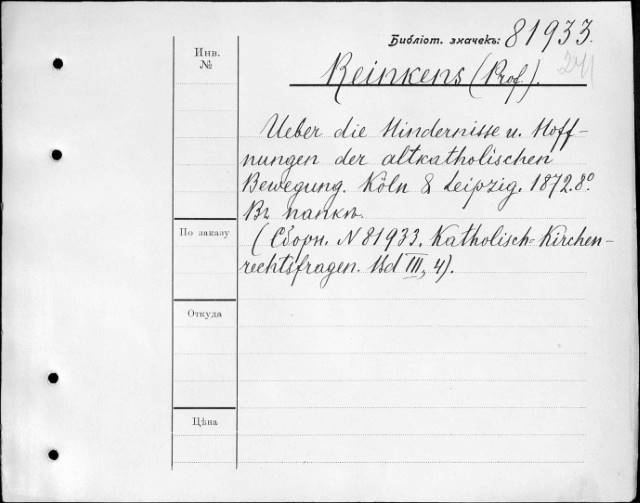 Библіот. значекъ: 81933.
Инв. №
241
Reinkens (Prof.).
Ueber die Hindernisse u. Hoff-
nungen der altkatholischen
Bewegung. Köln & Leipzig. 1872. 8º.
Въ папкѣ.
По заказу
(Сборн. N 81933. Katholisch-Kirchen-
rechtsfragen. Bd III, 4).
Откуда
Цѣна